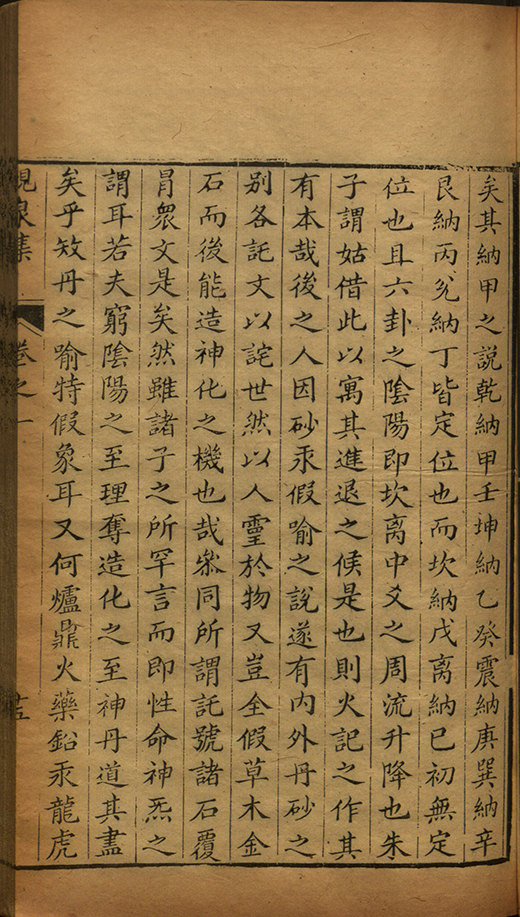 矣其納甲之說乾納甲壬坤納乙癸震納庚巽納辛
艮納丙兊納丁皆定位也而坎納戊离納巳初無定
位也且六卦之陰陽即坎离中爻之周流升降也朱
子謂姑借此以寓其進退之候是也則火記之作其
有本哉後之人因砂汞假喻之說遂有内外丹砂之
别各託文以詫世然以人靈於物又豈全假草木金
石而後能造神化之機也哉叅同所謂託號諸石覆
冐衆文是矣然雖諸子之所罕言而即性命神炁之
謂耳若夫窮陰陽之至理奪造化之至神丹道其盡
矣乎妏丹之喻特假象耳又何爐鼎火藥鉛汞龍虎
峴泉集 卷之一